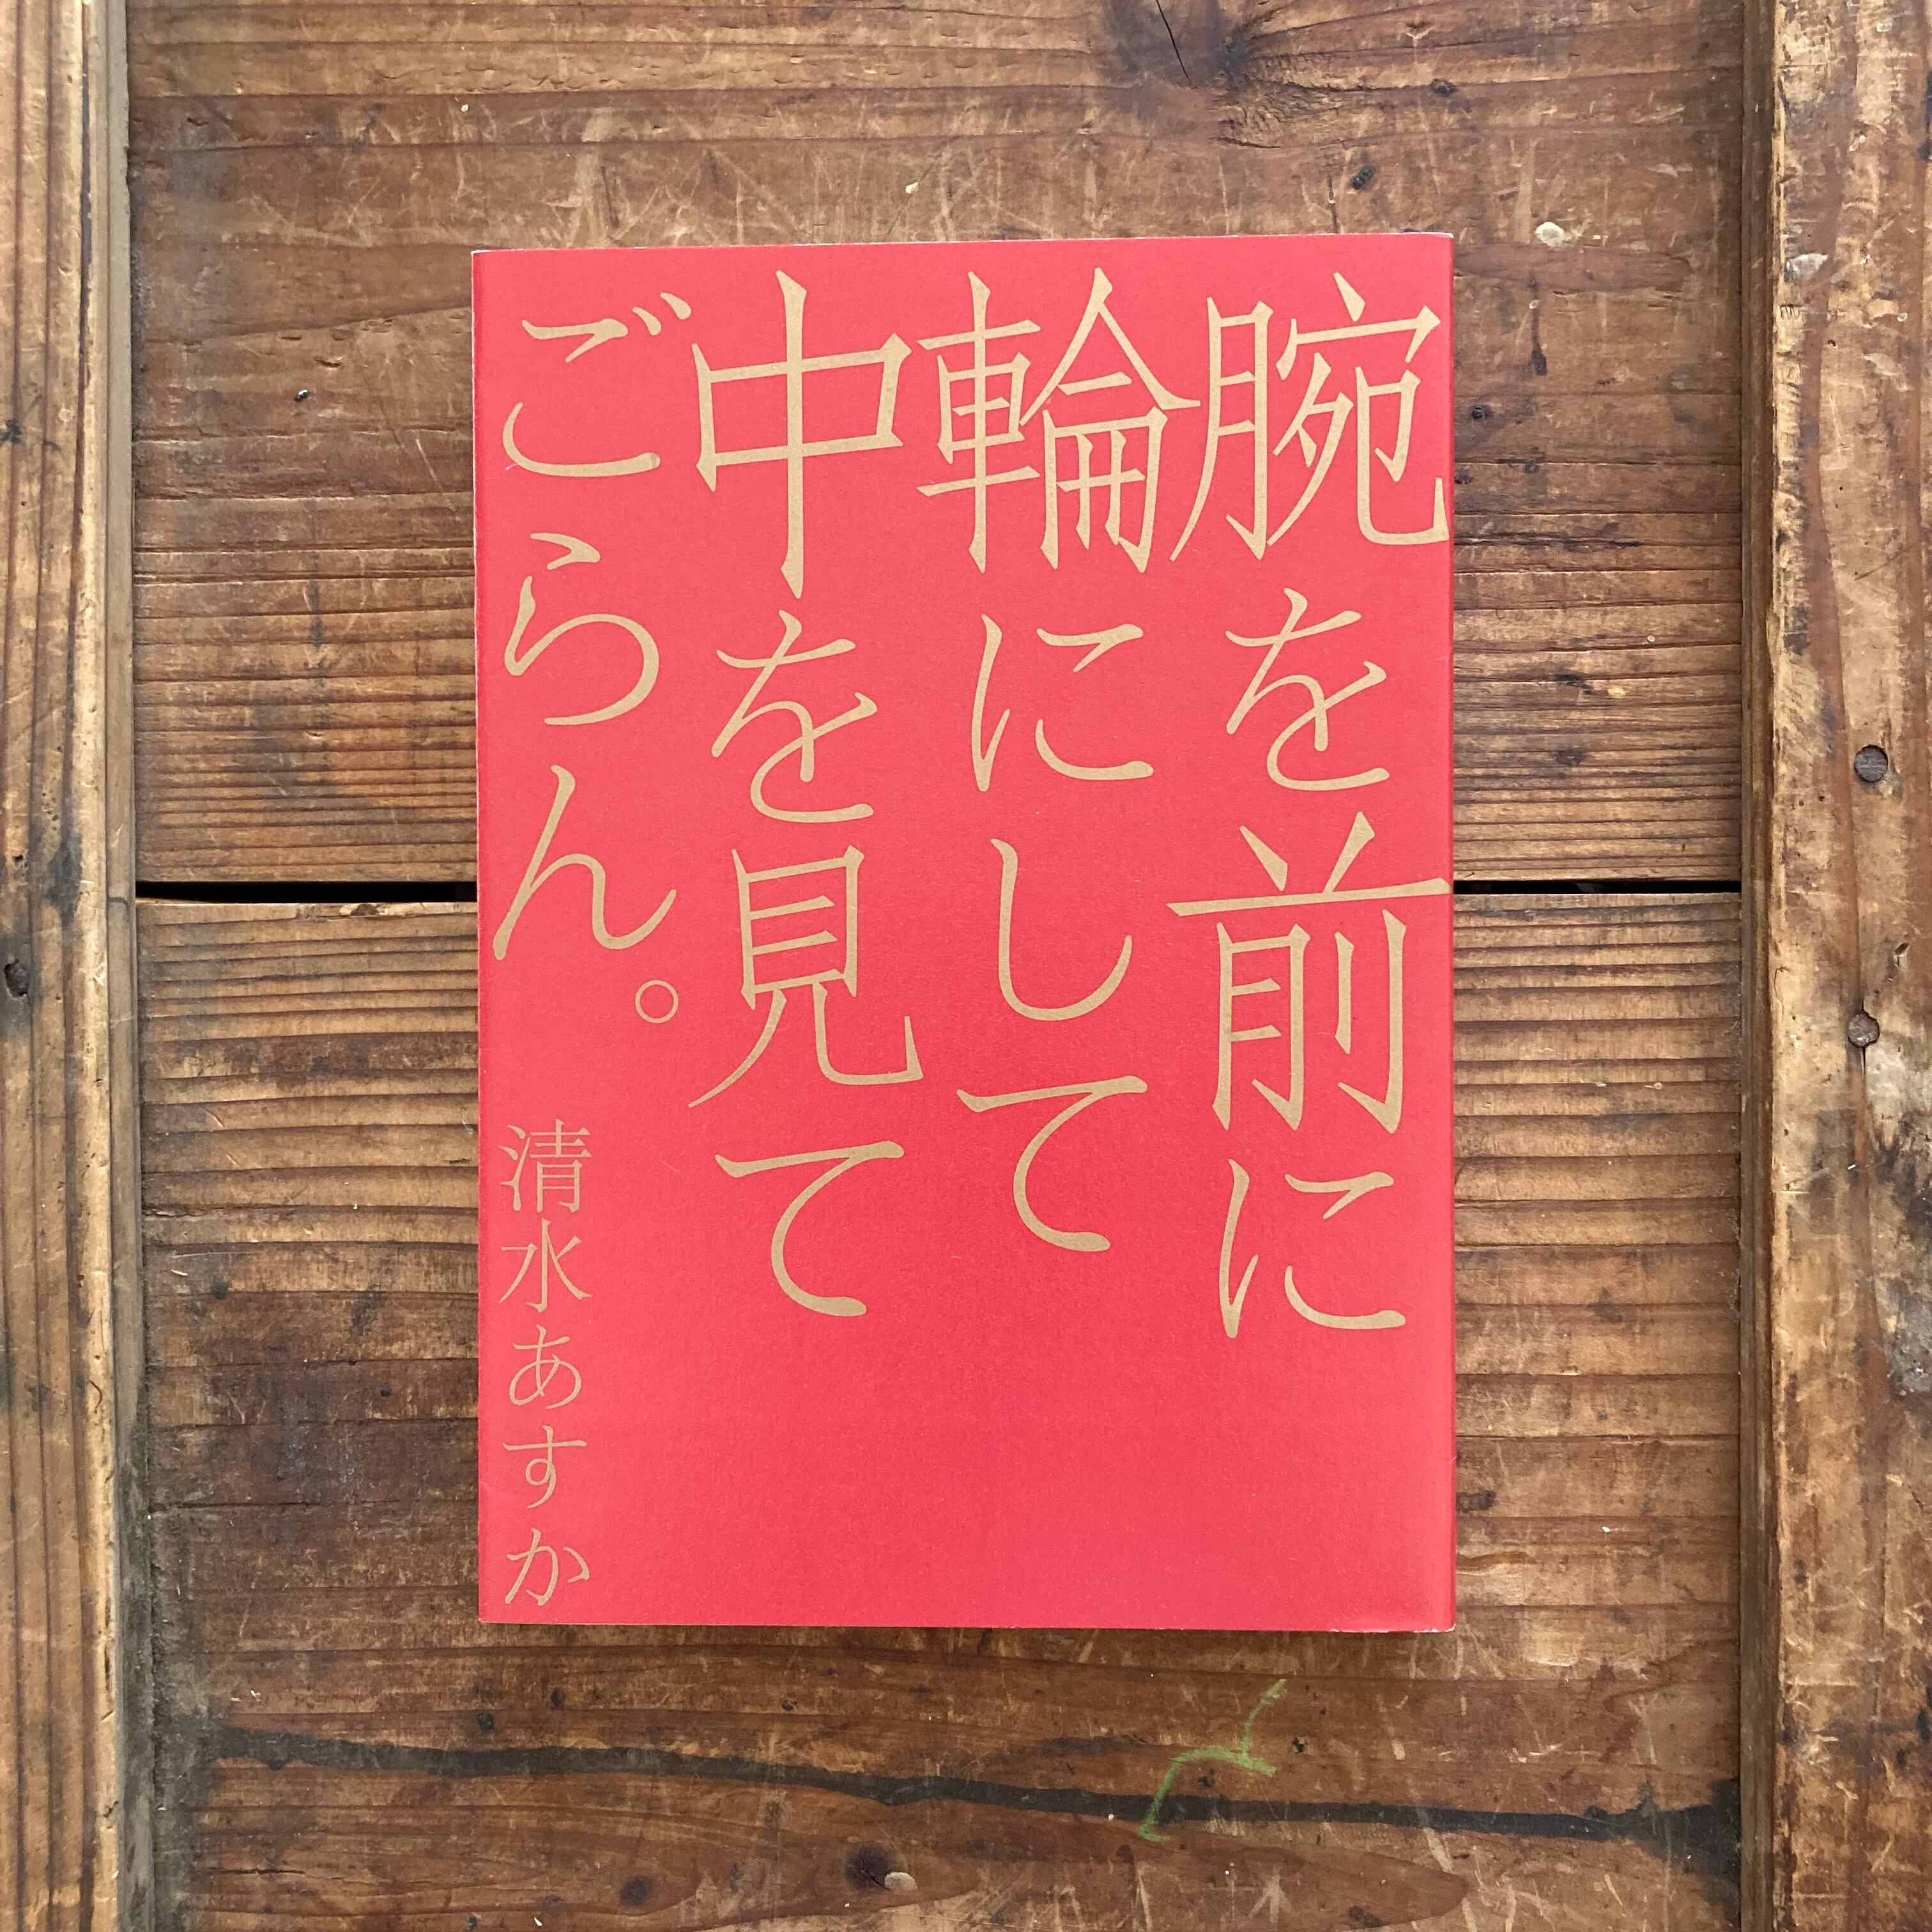 腕を前に
輪にして
中を見て
ごらん。
清水あすか